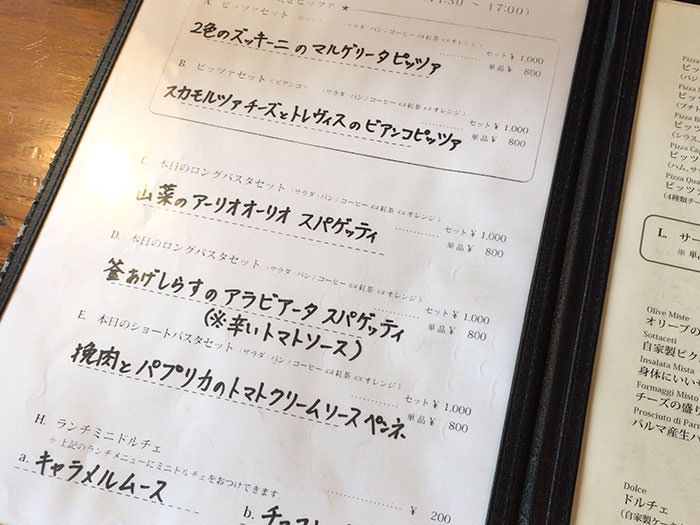 ～ 17:00)
A. ピッツァセット
セット ¥ 1,000
2色のズッキーニ の マルゲリータ ピッツァ
単品 ¥ 800
B. ピッツァセット (ビアンコ) (サラダ / パン / コーヒー or 紅茶 or オレンジ)
セット ¥ 1,000
スカモルツァ チーズと トレヴィス の ビアンコピッツァ
単品 ¥ 800
C. 本日のロングパスタセット (サラダ / パン / コーヒー or 紅茶 or オレンジ)
セット ¥ 1,000
山菜の アーリオオーリオ スパゲッティ
単品 ¥ 800
D. 本日のロングパスタセット (サラダ / パン / コーヒー or 紅茶 or オレンジ)
セット ¥ 1,000
釜あげしらすの アラビアータ スパゲッティ
単品 ¥ 800
(※辛いトマトソース)
E. 本日のショートパスタセット (サラダ / パン / コーヒー or 紅茶 or オレンジ)
セット ¥ 1,000
挽肉と パプリカのトマトクリームソース ペンネ
単品 ¥ 800
H. ランチミニドルチェ
※ 上記のランチメニューにミニドルチェをおつけできます
¥ 200
a. キャラメルムース
b.
L. サー
※ 単
Olive Miste
オリーブの
Sottaceti
自家製ピク
Insalata Mista
身体にいい
Formaggi Misto
チーズの盛り
Prosciuto di Par
パルマ産生ハ
Dolce
ドルチェ
(自家製ケー